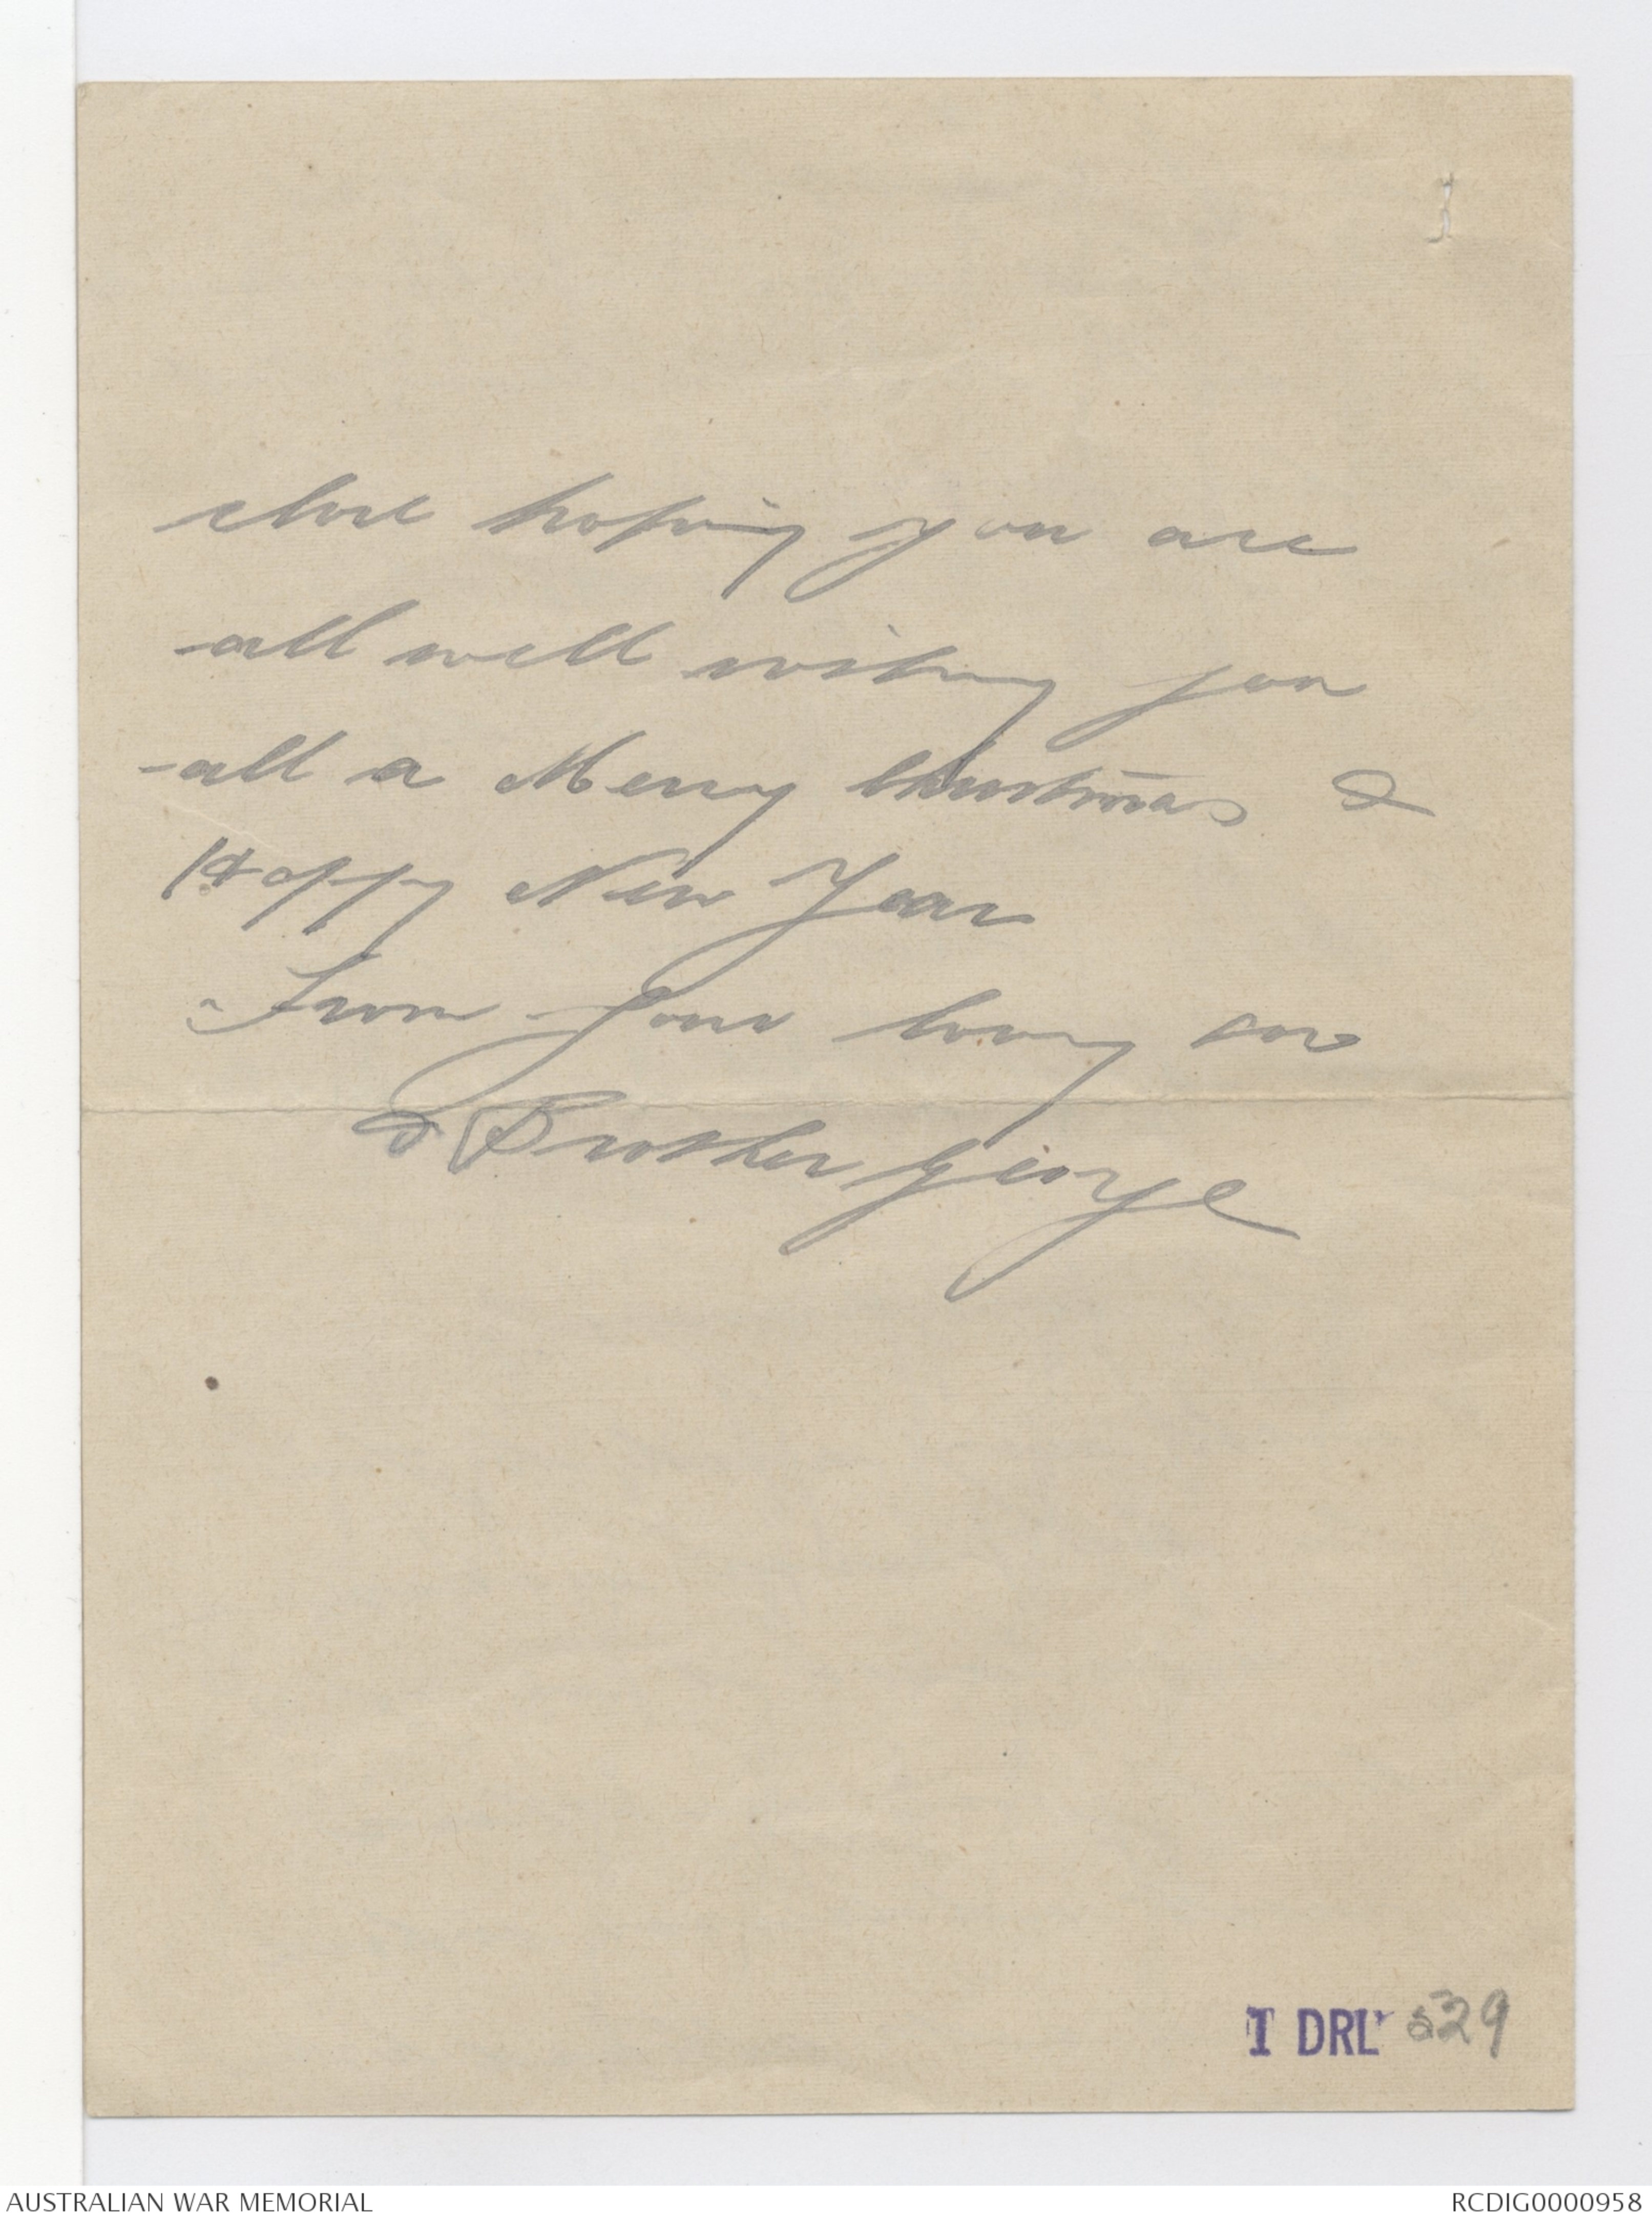 close hoping you are
all well wishing you
all a Merry Christmas &
Happy New Year
From your loving son
& Brother George
1 DRL 529
AUSTRALIAN WAR MEMORIAL
RCDIG0000958